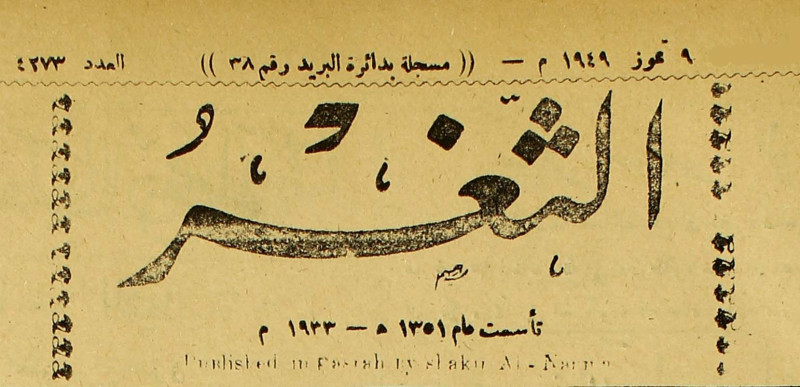 ٩ تموز ١٩٤٩ م — (( مسجلة بدائرة البريد ورقم ٣٨ )) العدد ٤٢٧٣
الثَّغْرُ
تأسست عام ١٣٥١ ه — ١٩٣٣ م
Published in Basrah by Shakir Al-